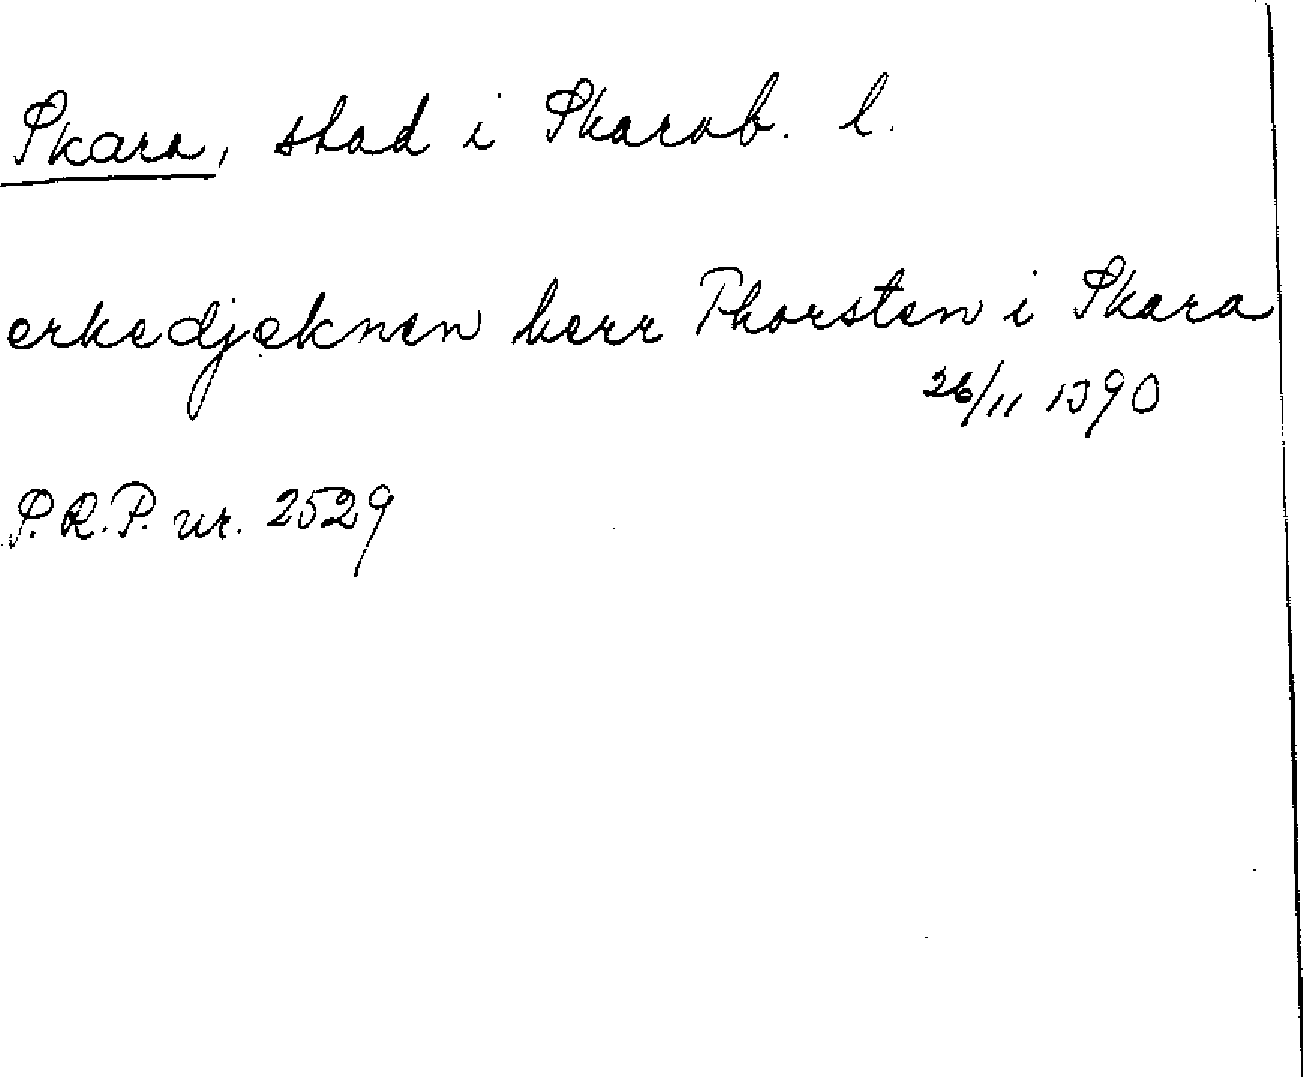 Skara, stad i Skarab. l.
erkedjeknen herr Thorsten i Skara
26/11 1390
S.R.P. nr. 2529